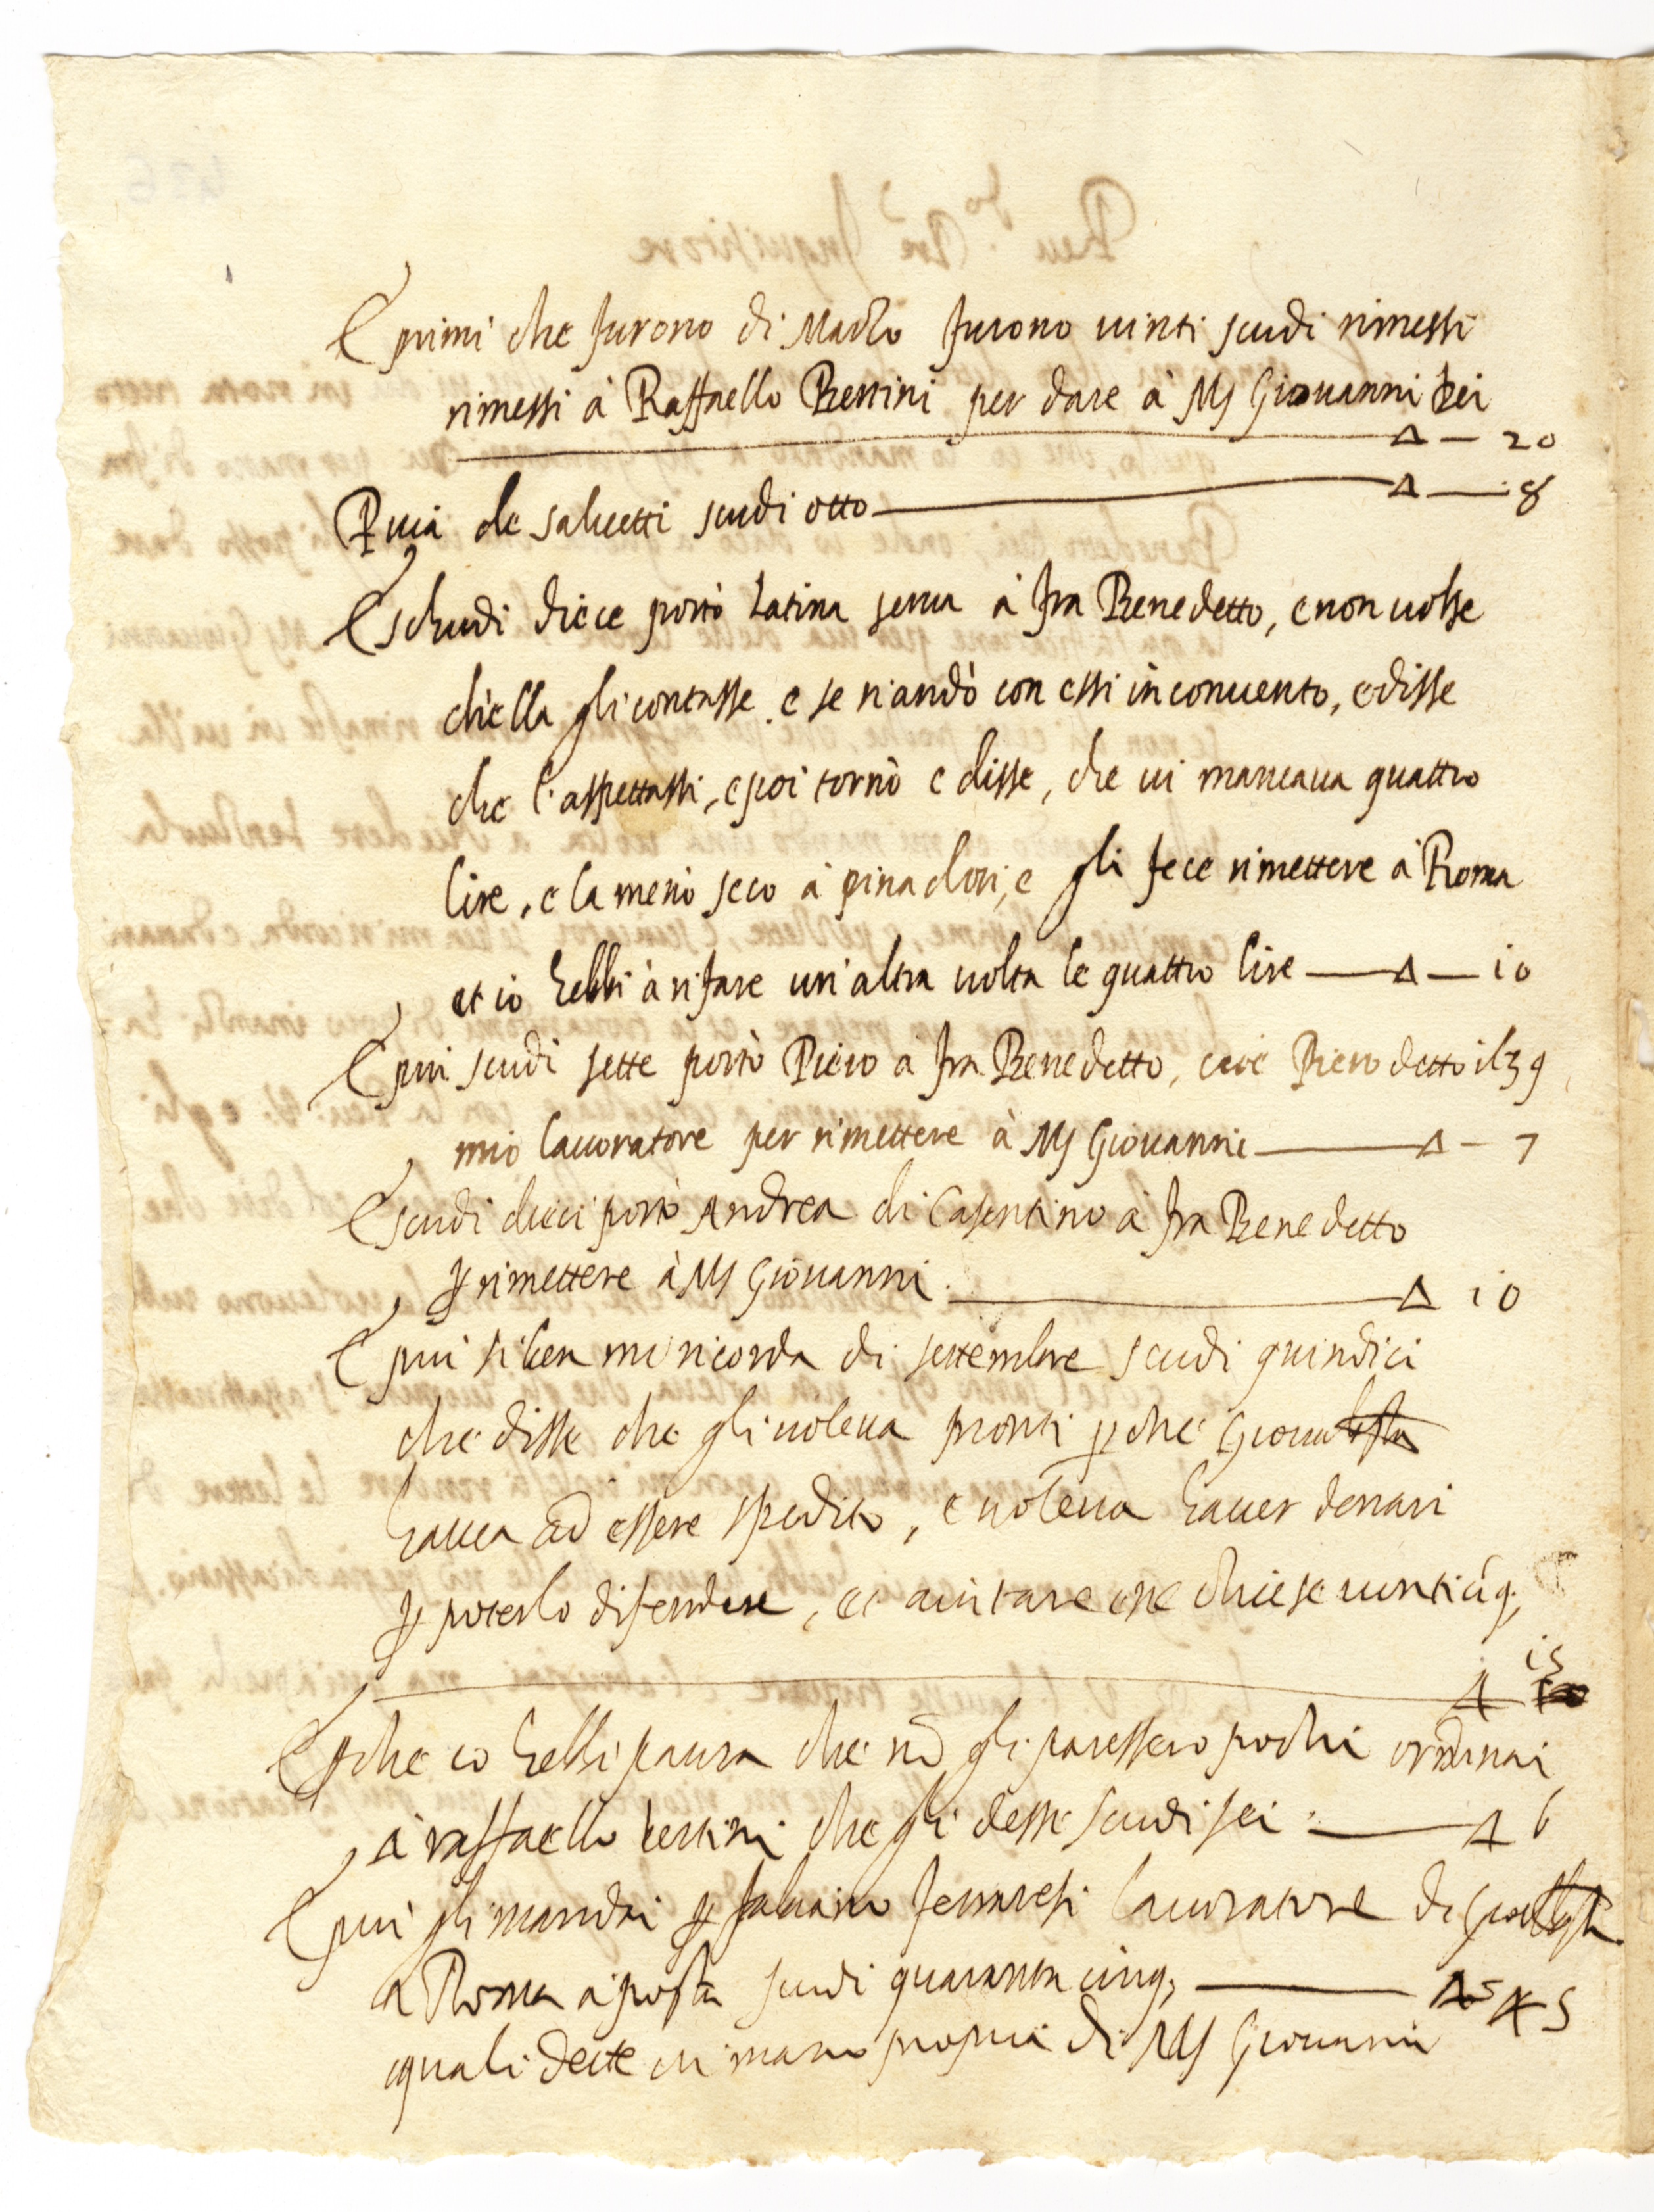 E primi che furono di Marzo furono uinti scudi rimessi
rimessi à Raffaello Bettini per dare à Ms Giouanni Bei
Δ — 20
P uia de saluetti scudi otto — Δ — 8
E schudi diece portò Latina serua à fra Benedetto, e non uolse
ch'ella gli contasse e se n'andò con essi in conuento, e disse
che l'aspettassi, e poi tornò e disse, che ui mancaua quattro
lire, e la menò seco à pinadori, e gli fece rimettere à Roma
et io hebbi à rifare un'altra uolta le quattro lire — Δ — 10
E piu scudi sette portò Piero à fra Benedetto, cioè Piero detto il
mio lauoratore per rimettere à Ms Giouanni — Δ — 7
E scudi dieci portò Andrea di Casentino à fra Benedetto
p rimettere à Ms Giouanni. — Δ 10
E piu si ben mi ricorda di settembre scudi quindici
che disse che gli uoleua pronti p che
hauea ad essere spedito, e uoleua hauer denari
p poterlo difendere, et aiutare e ne chiese uinticiq,
Δ 15
E p che io hebbi paura che nō gli paressero pochi ordinai
à raffaello bettini che gli desse scudi sei — Δ 6
E piu gli mandai p ferraresi lauoratore di
a Roma à posta scudi quaranta cinq, — Δ 45
quali dette in mano propria di Ms Giouanni